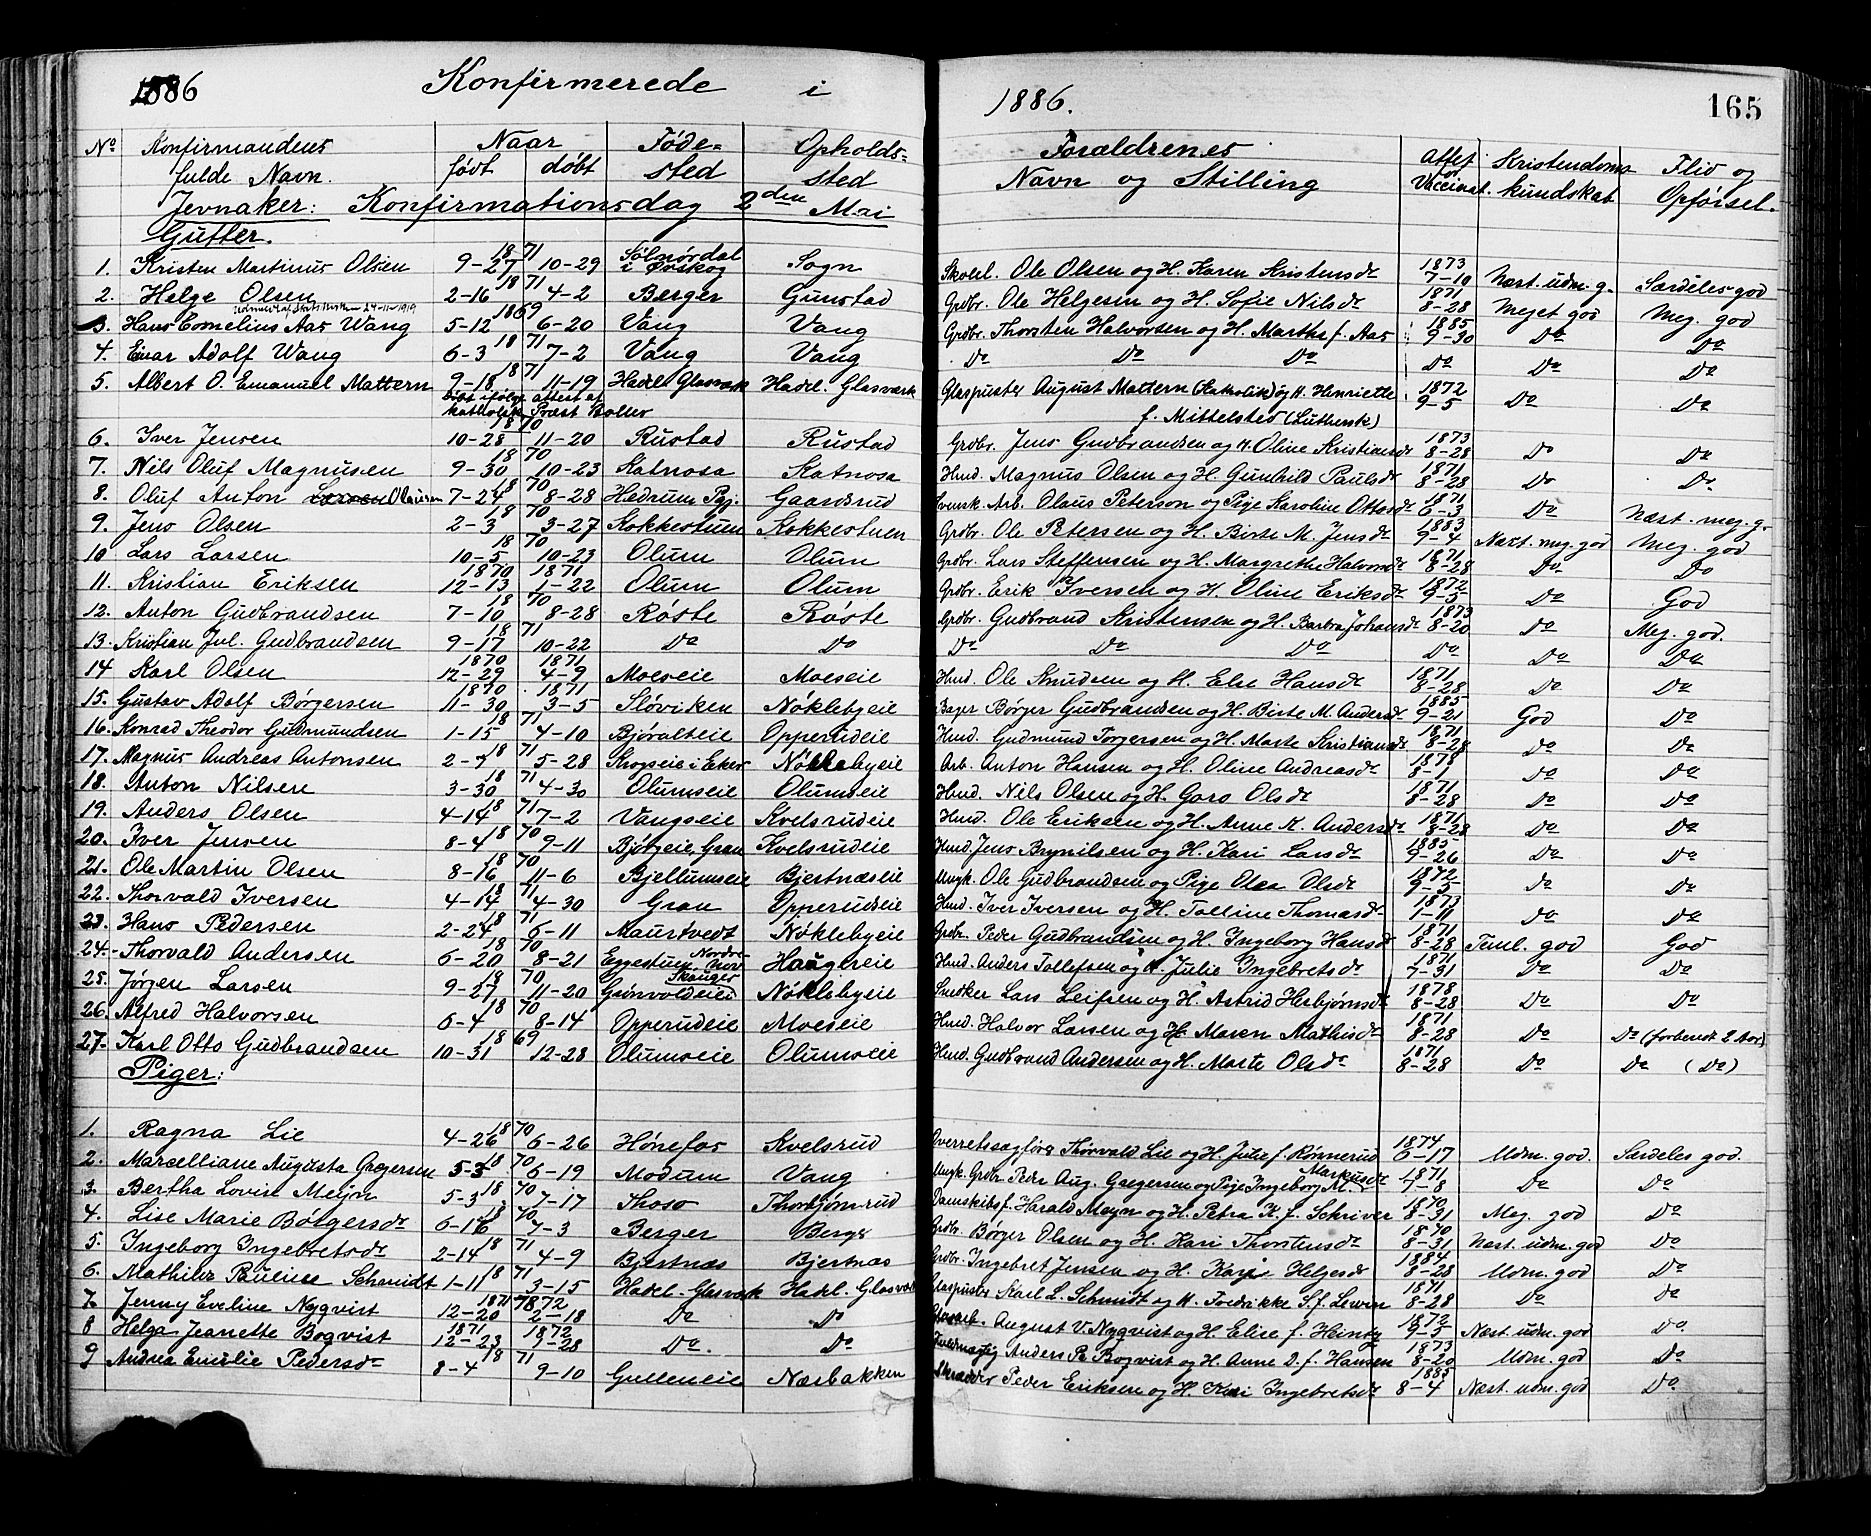 1886 Konfirmerede i 1886. 165
No Konfirmandens fulde Navn. Naar født døbt Føde-sted Opholds-sted Forældrenes Navn og Stilling Attest for Vaccinat. Kristendoms kundskab Flid og Opførsel.
Jevnaker: Konfirmationsdag 2den Mai
Gutter.
1. Kristen Martinus Olsen 9-27 1871 10-29 Sølnørdal i Ørskog Sogn Skolel. Ole Olsen og H. Karen Kristensdr 1873 7-10 Næst. udm. g. Særdeles god
2. Helge Olsen 2-16 1871 4-2 Berger Gunstad Grdbr. Ole Helgesen og H. Sofie Nilsdr 1871 8-28 Meget god Meg. god
3. Hans Cornelius Aas Wang 5-12 1869 6-20 Vang Vang Grdbr. Thorsten Halvorsen og H. Marthe f. Aas 1885 9-30 Do Do
4. Einar Adolf Wang 6-3 1871 7-2 Vang Vang Do Do Do Do Do Do
5. Albert O. Emanuel Mattern 9-18 1871 11-19 Hadel. Glasværk Hadel. Glasværk Glaspuster August Mattern (Katholik) og H. Henriette 1872 9-5 Do Do
Døbt ifølge attest af katholsk Præst f. Mittelsted (Luthersk)
6. Iver Jensen 10-28 1870 11-20 Rustad Rustad Grdbr. Jens Gudbrandsen og H. Oline Kristiansdr 1873 8-28 Do Do
7. Nils Oluf Magnusen 9-30 1870 10-23 Katnosa Katnosa Hmd. Magnus Olsen og H. Gunhild Paulsdr 1871 8-28 Do Do
8. Oluf Anton Larsen Olausen 7-24 1870 8-28 Hedrum Pgj. Gaardsrud Svensk. Arb. Olaus Peterson og Pige Karoline Ottosdr 1871 6-3 Do Næst. meg. g.
9. Jens Olsen 2-3 1870 3-27 Kokkestuen Kokkestuen Grdbr. Ole Petersen og H. Birte M. Jensdr 1883 9-4 Næst. meg. god Meg. god
10 Lars Larsen 10-5 1870 10-23 Olum Olum Grdbr. Lars Steffensen og H. Margrethe Halvorsdr 1871 8-28 Do Do
11. Kristian Eriksen 1870 12-13 1871 1-22 Olum Olum Grdbr. Erik Iversen og H. Oline Eriksdr 1872 9-5 Do God
12. Anton Gudbrandsen 7-10 1870 8-28 Røste Røste Grdbr. Gudbrand Kristensen og H. Barbra Johansdr 1873 8-20 Do Meg. god.
13. Kristian Jul. Gudbrandsen 9-17 1871 10-22 Do Do Do Do Do Do Do Do
14 Karl Olsen 1870 12-29 1871 4-9 Moeseie Moeseie Hmd. Ole Knudsen og H. Else Hansdr 1871 8-28 Do Do
15. Gustav Adolf Børgersen 1870 11-30 1871 3-5 Sløviken Nøklebyeie Bager Børger Gudbrandsen og H. Birte M. Andersdr 1885 9-21 God Do
16. Konrad Theodor Gudmundsen 1-15 1871 4-10 Bjøralteie Opperudeie Hmd. Gudmund Torgersen og H. Marte Kristiansdr 1871 8-28 Do Do
17. Magnus Andreas Antonsen 2-7 1871 5-28 Skogseie i Eker Nøklebyeie Arb. Anton Hansen og H. Oline Andreasdr 1878 8-1 Do Do
18. Anton Nilsen 3-30 1871 4-30 Olumseie Olumseie Hmd. Nils Olsen og H. Goro Olsdr 1871 8-28 Do Do
19. Anders Olsen 4-14 1871 7-2 Vangseie Kvelsrudeie Hmd. Ole Eriksen og H. Anne K. Andersdr 1871 8-28 Do Do
20. Iver Jensen 8-4 1870 9-11 Bjørgeie, Gran Kvelsrudeie Hmd. Jens Brynilsen og H. Kari Larsdr 1885 9-26 Do Do
21. Ole Martin Olsen 8-16 1870 11-6 Bjellumseie Bjertnæseie Ungk. Ole Gudbrandsen og Pige Olea Olsdr 1872 9-5 Do Do
22. Thorvald Iversen 4-14 1871 4-30 Gran Opperudseie Hmd. Iver Iversen og H. Tolline Thomasdr 1873 1-11 Do Do
23. Hans Pedersen 2-24 1871 6-11 Maurtvedt Nøklebyeie Grdbr. Peder Gudbrandsen og H. Ingeborg Hansdr 1871 8-28 Teml. god God
24. Thorvald Andersen 6-20 1870 8-21 Eggestuen Nordre- Haugereie Hmd. Anders Tollefsen og H. Julie Ingebretsdr 1871 7-31 Do Do
25. Jørgen Larsen 9-27 1870 11-20 Grønvoldeie Nøklebyeie Snedker Lars Leifsen og H. Astrid Herbjørnsdr 1878 8-28 Do Do
26. Alfred Halvorsen 6-4 1870 8-14 Opperudeie Moeseie Hmd. Halvor Larsen og H. Maren Mathisdr 1871 8-28 Do Do (forberedt 2 Aar)
27. Karl Otto Gudbrandsen 10-31 1869 12-28 Olumseie Olumseie Hmd. Gudbrand Andersen og H. Marte Olsdr 1871 8-28 Do Do (Do)
Piger:
1. Ragna Lie 4-26 1870 6-26 Hønefos Kvelsrud Overretssagfører Thorvald Lie og H. Julie f. Rønnerud 1874 6-17 Udm. god. Særdeles god.
2. Marcelliane Augusta Gregersen 5-3 1870 6-19 Modum Vang Ungk. Grdbr. Peder Aug. Gregersen og Pige Ingeborg M. Markusdr 1871 7-8 Do Do
3. Bertha Lovise Meijn 5-3 1870 7-17 Thoso Thorbjørnrud Dampskibsf. Harald Meyn og H. Petra K. f. Schriver 1870 8-31 Meg. god Do
4. Lise Marie Børgersdr 6-16 1870 7-3 Berger Berger Grdbr. Børger Olsen og H. Kari Thorstensdr 1870 8-31 Næst. udm. god Do
5. Ingeborg Ingebretsdr 2-14 1871 4-9 Bjertnæs Bjertnæs Grdbr. Ingebret Jensen og H. Kari Helgesdr 1884 8-28 Udm. god Do
6. Mathilde Pauline Schmidt 1-11 1871 3-15 Hadel. Glasværk Hadel. Glasværk Glaspuster Karl L. Schmidt og H. Fredrikke S. f. Lewin 1871 8-28 Do Do
7. Jenny Eveline Nyqvist 1871 12-20 1872 2-18 Do Do Glasarb. August V. Nyqvist og H. Elise f. Heintz 1872 9-5 Næst. udm. god Do.
8 Helga Jeanette Boqvist 1871 12-23 1872 1-28 Do. Do Fuldmægtig Anders P. Boqvist og H. Anne D. f. Hansen 1873 8-20 Udm. god Do
9 Andrea Emilie Pedersdr 8-4 1871 9-10 Gulleneie Næsbakken Skrædder Peder Eriksen og H. Kari Ingebretsdr 1885 8-4 Næst. udm. god Do